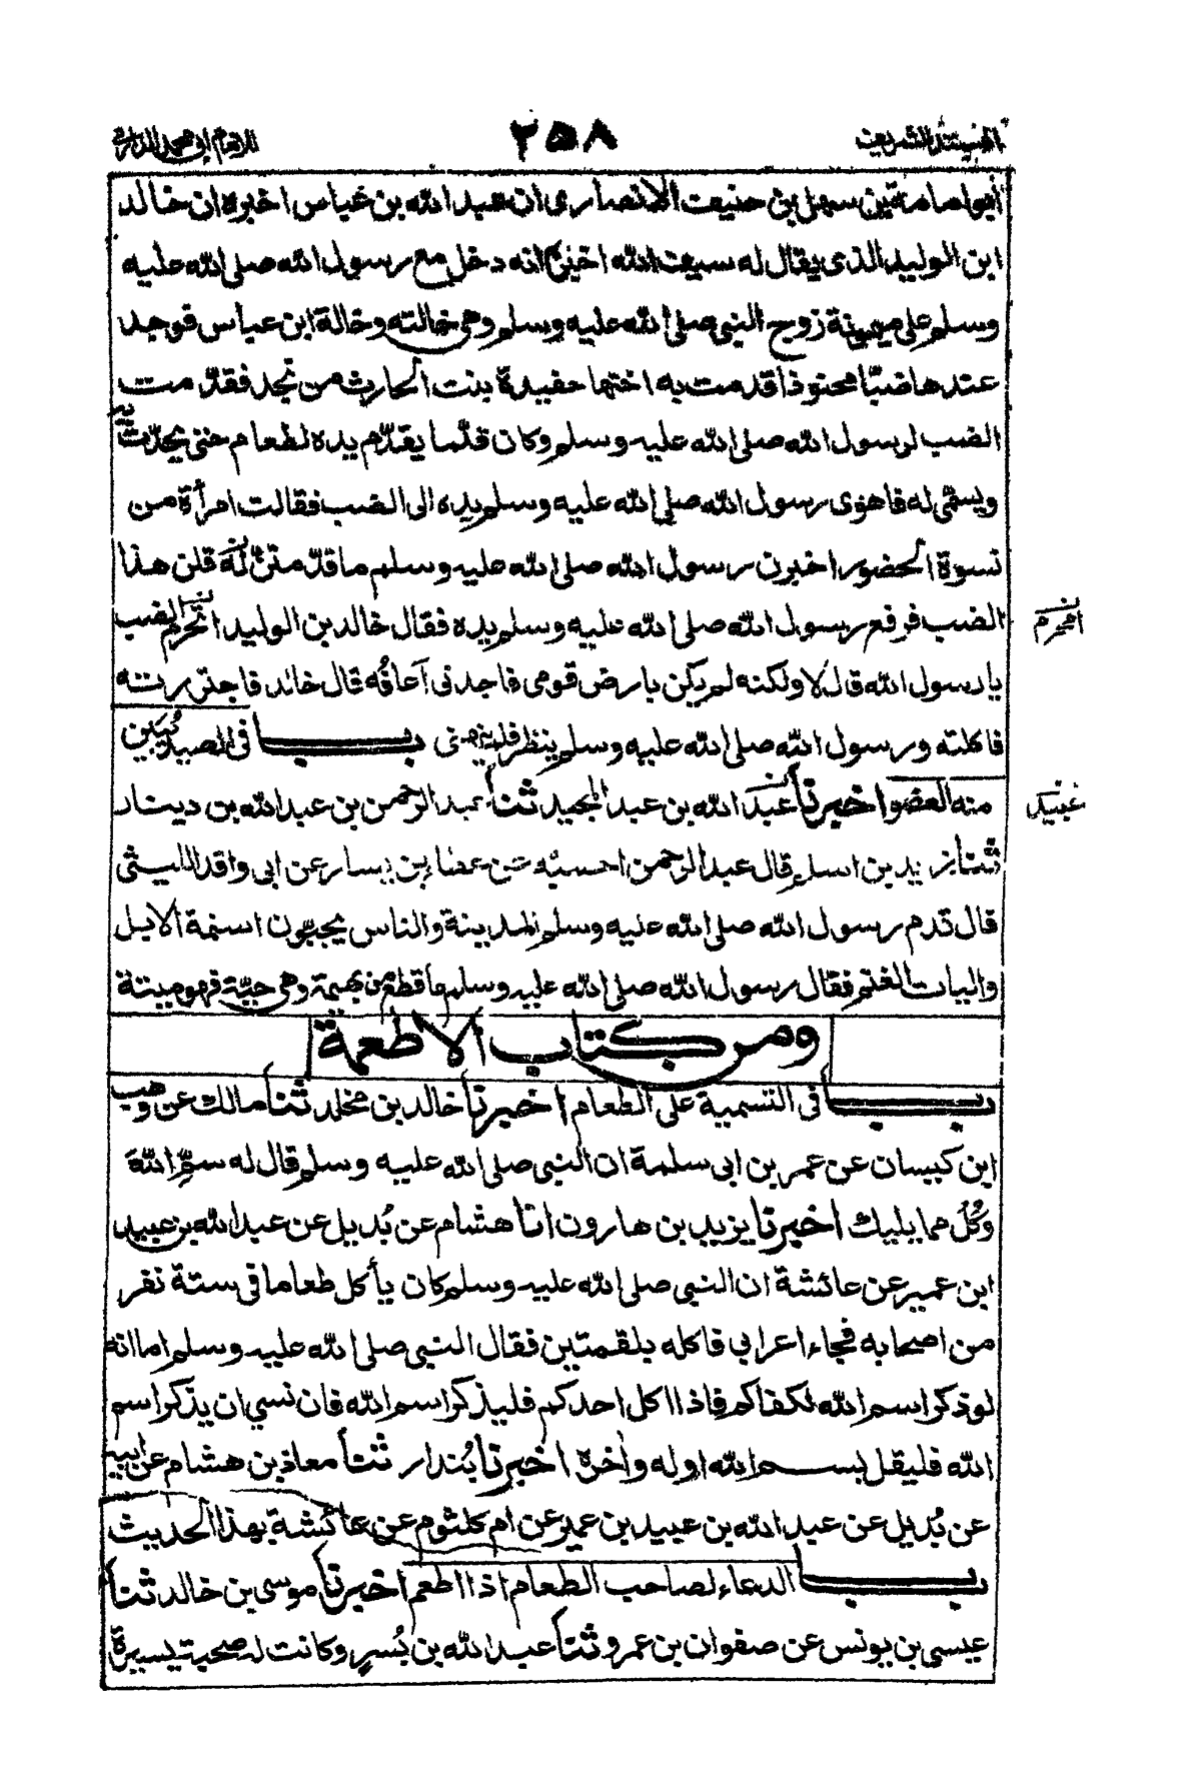 المسند الشريف
٢٥٨
للامام ابى محمد الدارمى
أبو امامة بن سهل بن حنيف الانصارى ان عبد الله بن عباس اخبره ان خالد
ابن الوليد الذى يقال له سيف الله اخبره انه دخل مع رسول الله صلى الله عليه
وسلم على ميمونة زوج النبى صلى الله عليه وسلم وهى خالته وخالة ابن عباس فوجد
عندها ضبّا محنوذا قدمت به اختها حفيدة بنت الحارث من نجد فقدّمت
الضب لرسول الله صلى الله عليه وسلم وكان قلّما يقدّم يده لطعام حتى يحدّث به
ويسمّى له فاهوى رسول الله صلى الله عليه وسلم يده الى الضب فقالت امرأة من
نسوة الحضور اخبرن رسول الله صلى الله عليه وسلم ما قدّمتنّ لَهُ قلن هذا
الضب فرفع رسول الله صلى الله عليه وسلم يده فقال خالد بن الوليد اتحرم الضب
امحرم
يا رسول الله قال لا ولكنه لم يكن بارض قومى فاجدنى اَعافُه قال خالد فاجتررته
فاكلته ورسول الله صلى الله عليه وسلم ينظر فلم ينهنى باب فى الصيد يُبَين
منه العضو اخبرنا عبد الله بن عبد المجيد ثنا عبد الرحمن بن عبد الله بن دينار
عبيد
ثنا زيد بن اسلم قال عبد الرحمن احسبه عن عطاء بن يسار عن ابى واقد الليثى
قال قدم رسول الله صلى الله عليه وسلم المدينة والناس يجبّون اسنمة الابل
واليات الغنم فقال رسول الله صلى الله عليه وسلم ما قطع من بهيمة وهى حيّة فهو ميتة
ومن كتاب الاطعمة
باب فى التسمية على الطعام اخبرنا خالد بن مخلد ثنا مالك عن وهب
ابن كيسان عن عمر بن ابى سلمة ان النبى صلى الله عليه وسلم قال له سمِّ اللهَ
وكُلْ مما يليك اخبرنا يزيد بن هارون انا هشام عن بُديل عن عبد الله بن عبيد
ابن عمير عن عائشة ان النبى صلى الله عليه وسلم كان يأكل طعاما فى ستة نفر
من اصحابه فجاء اعرابي فاكله بلقمتين فقال النبى صلى الله عليه وسلم اما انه
لو ذكر اسم الله لكفاكم فاذا اكل احدكم فليذكر اسم الله فان نسي ان يذكر اسم
الله فليقل بسم الله اوله وآخره اخبرنا بُندار ثنا معاذ بن هشام عن ابيه
عن بُديل عن عبد الله بن عبيد بن عمير عن ام كلثوم عن عائشة بهذا الحديث
باب الدعاء لصاحب الطعام اذا اطعم اخبرنا موسى بن خالد ثنا
عيسى بن يونس عن صفوان بن عمرو ثنا عبد الله بن بُسرٍ وكانت له صحبة يسيرة